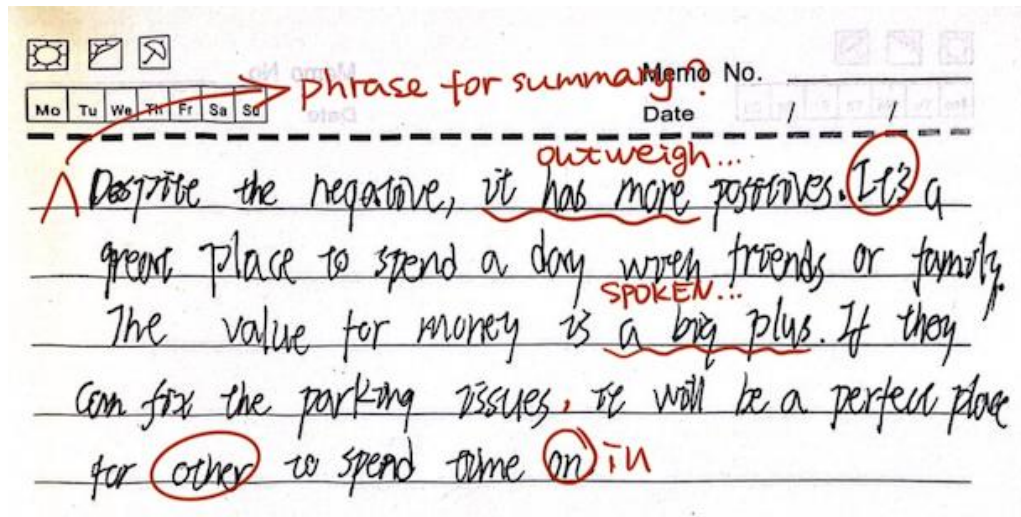 phrase for summary?
Memo No.
Mo Tu We Th Fr Sa Su
Date / /
outweigh...
Despite the negative, it has more positives. It's a
great place to spend a day with friends or family.
SPOKEN...
The value for money is a big plus. If they
can fix the parking issues, it will be a perfect place
for other to spend time on in